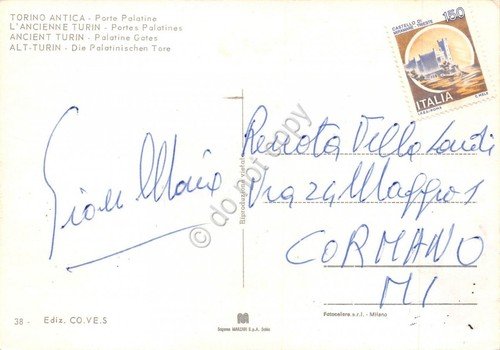 TORINO ANTICA - Porte Palatine
L'ANCIENNE TURIN - Portes Palatines
ANCIENT TURIN - Palatine Gates
ALT-TURIN - Die Palatinischen Tore
CASTELLO DI
MIRAMARE - TRIESTE
150
ITALIA
Gian Maria
Renata Villa Landi
Via 24 Maggio 1
CORMANO
MI
Riproduzione vietata
do not copy
38 - Ediz. CO.VE.S
Sapone MARZARI S.p.A. Schio
Fotocelere s.r.l. - Milano